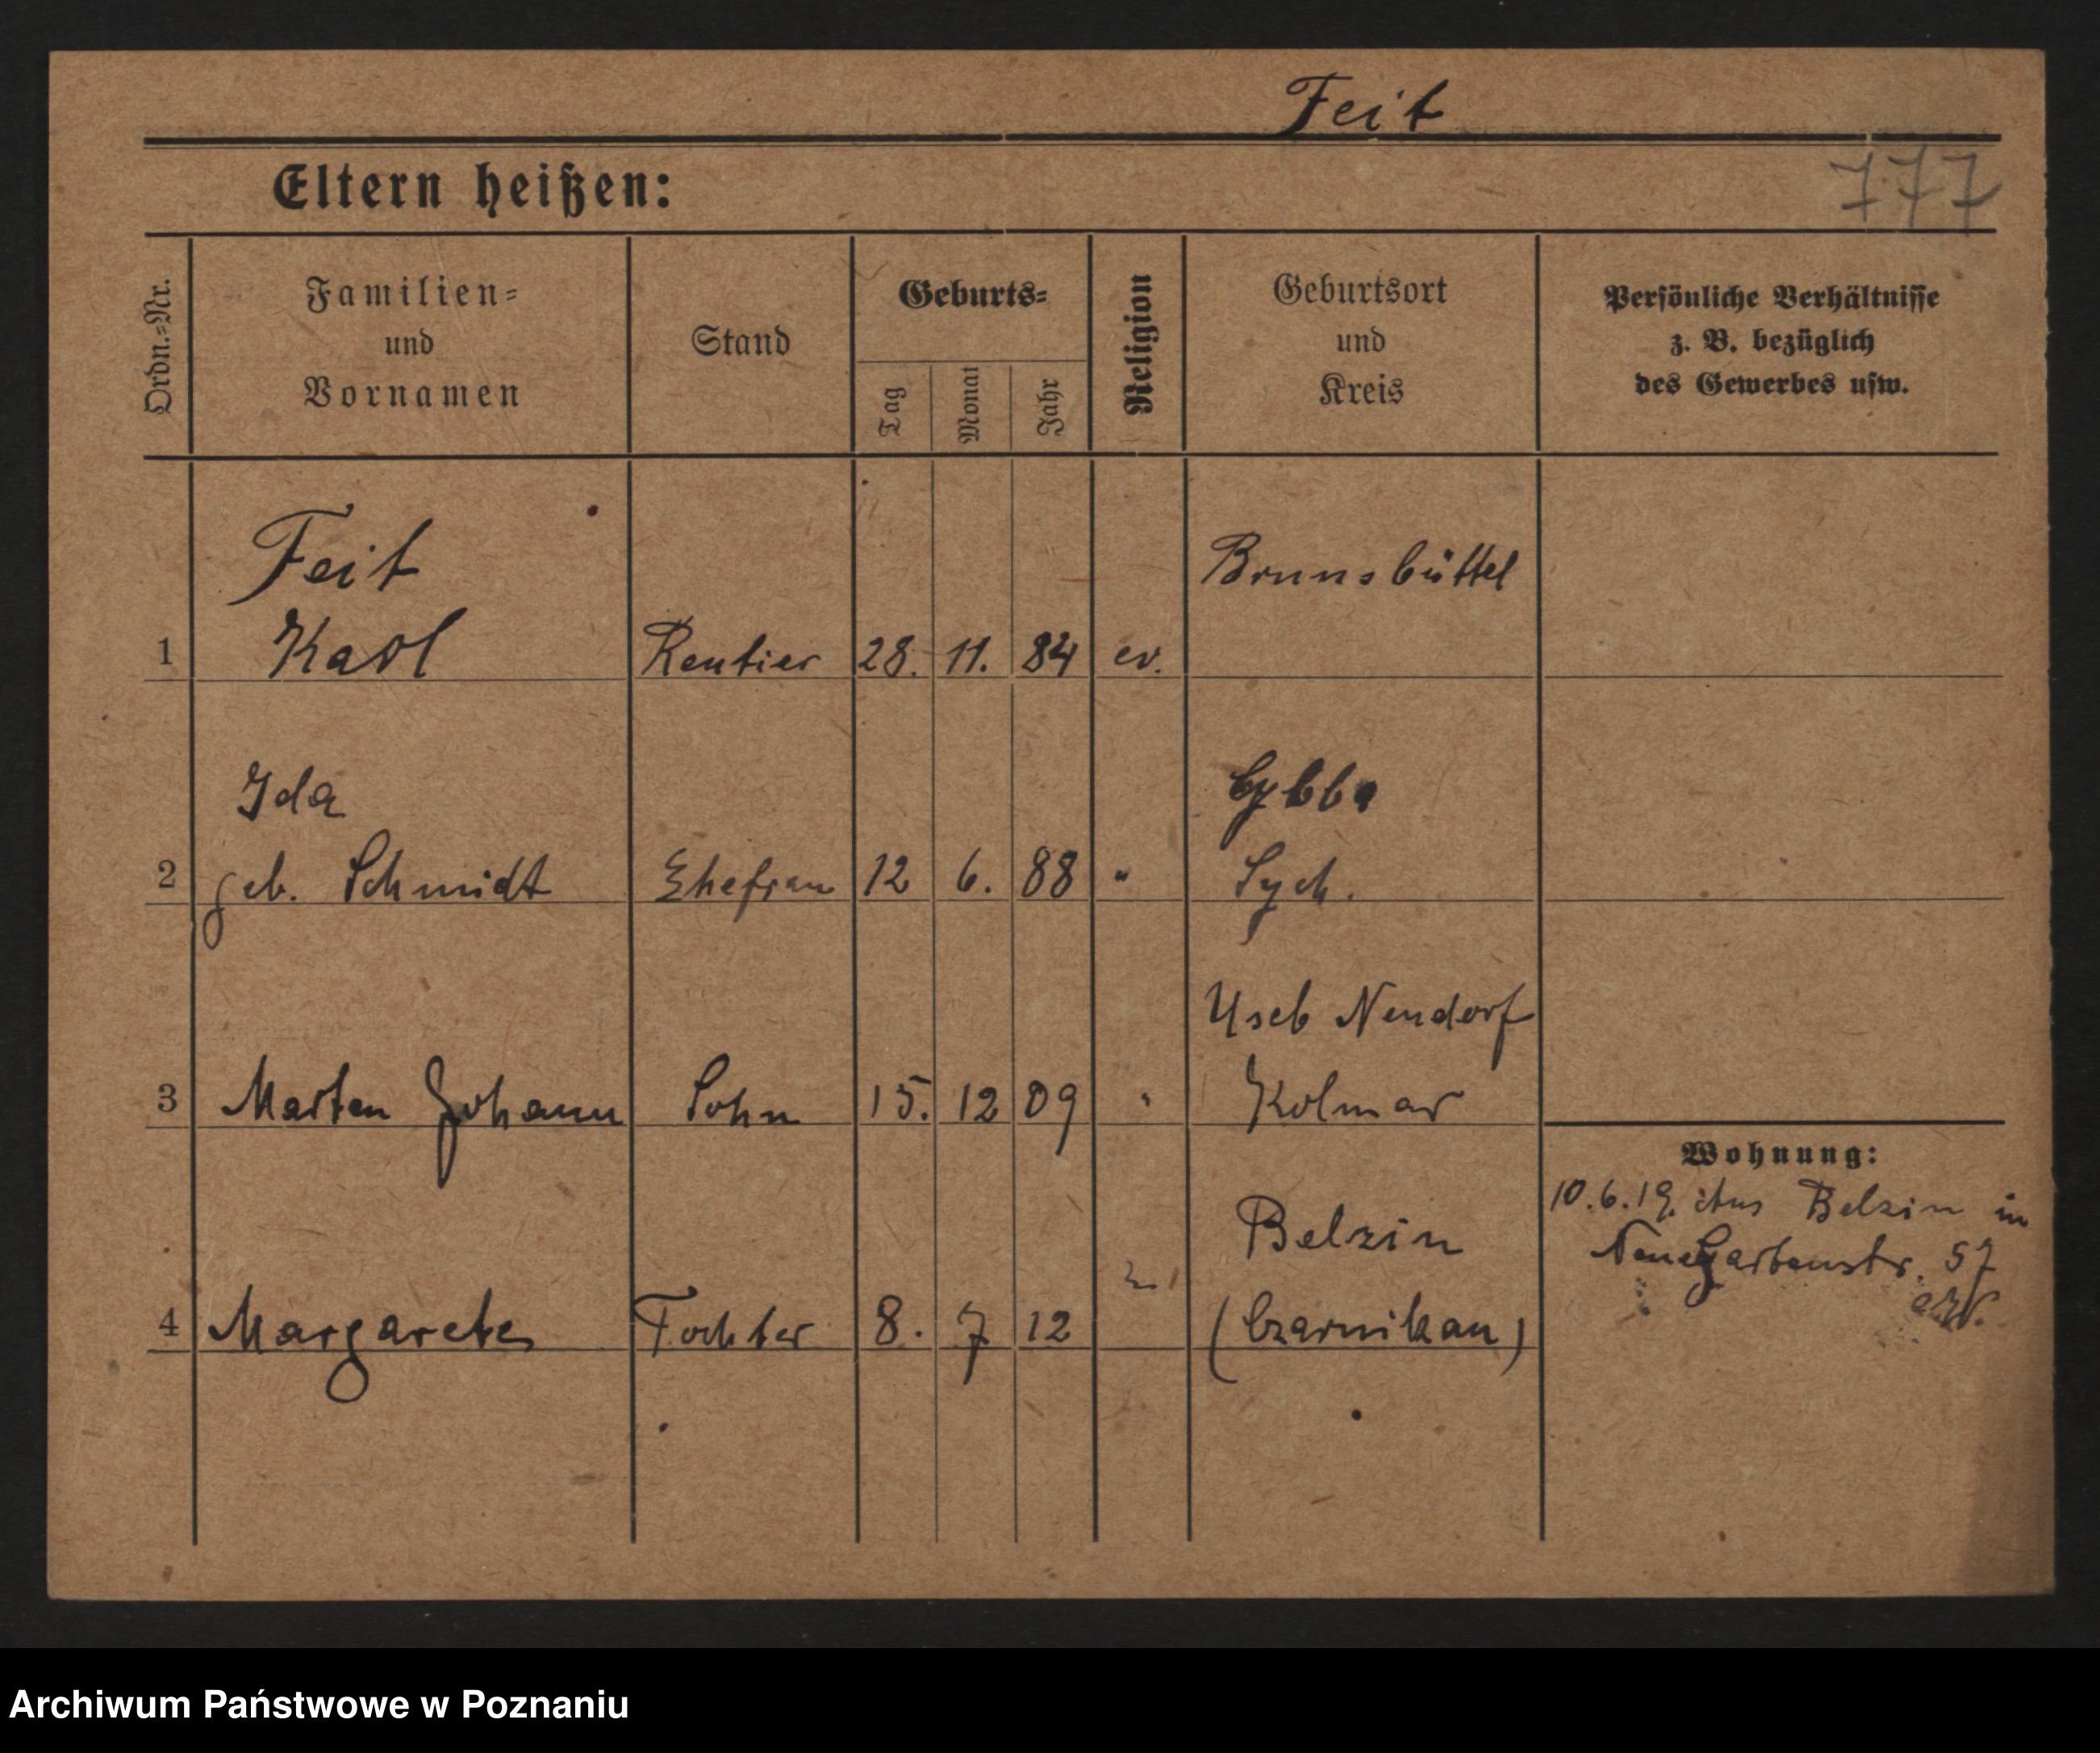 Feit
777
Eltern heißen:
Ordn.=Nr.
Familien=
und
Vornamen
Stand
Geburts=
Tag
Monat
Jahr
Religion
Geburtsort
und
Kreis
Persönliche Verhältnisse
z. B. bezüglich
des Gewerbes usw.
Feit
Brunsbüttel
1 Karl Rentier 28. 11. 84 ev.
Ida
2 geb. Schmidt Ehefrau 12 6. 88 "
Neudorf
3 Marten Johann Sohn 15. 12 09 " Kolmar
Wohnung:
10.6.19. Aus Belzin in
Neue Gartenstr. 57
Belzin
4 Margarete Tochter 8. 7 12 (Czarnikau)
Archiwum Państwowe w Poznaniu